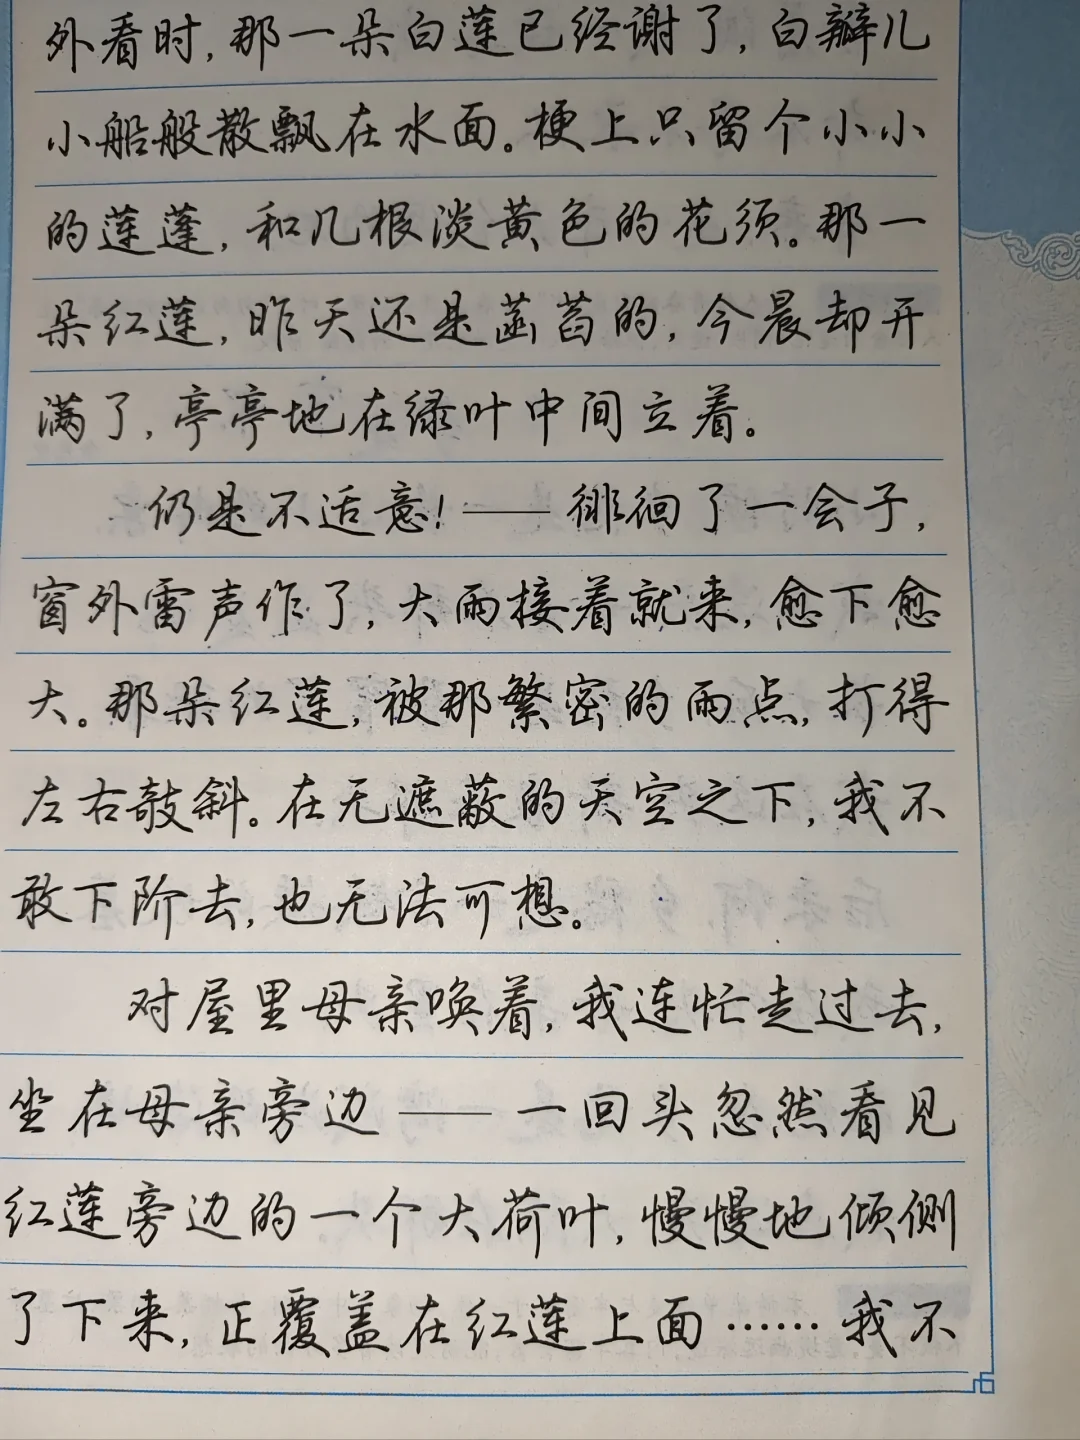 外看时，那一朵白莲已经谢了，白瓣儿
小船般散飘在水面。梗上只留个小小
的莲蓬，和几根淡黄色的花须。那一
朵红莲，昨天还是菡萏的，今晨却开
满了，亭亭地在绿叶中间立着。
仍是不适意！——徘徊了一会子，
窗外雷声作了，大雨接着就来，愈下愈
大。那朵红莲，被那繁密的雨点，打得
左右敧斜。在无遮蔽的天空之下，我不
敢下阶去，也无法可想。
对屋里母亲唤着，我连忙走过去，
坐在母亲旁边——一回头忽然看见
红莲旁边的一个大荷叶，慢慢地倾侧
了下来，正覆盖在红莲上面……我不